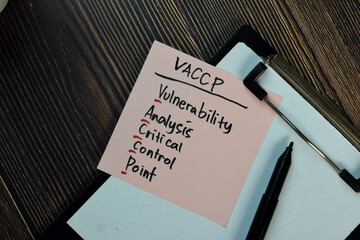 VACCP
Vulnerability
Analysis
Critical
Control
Point